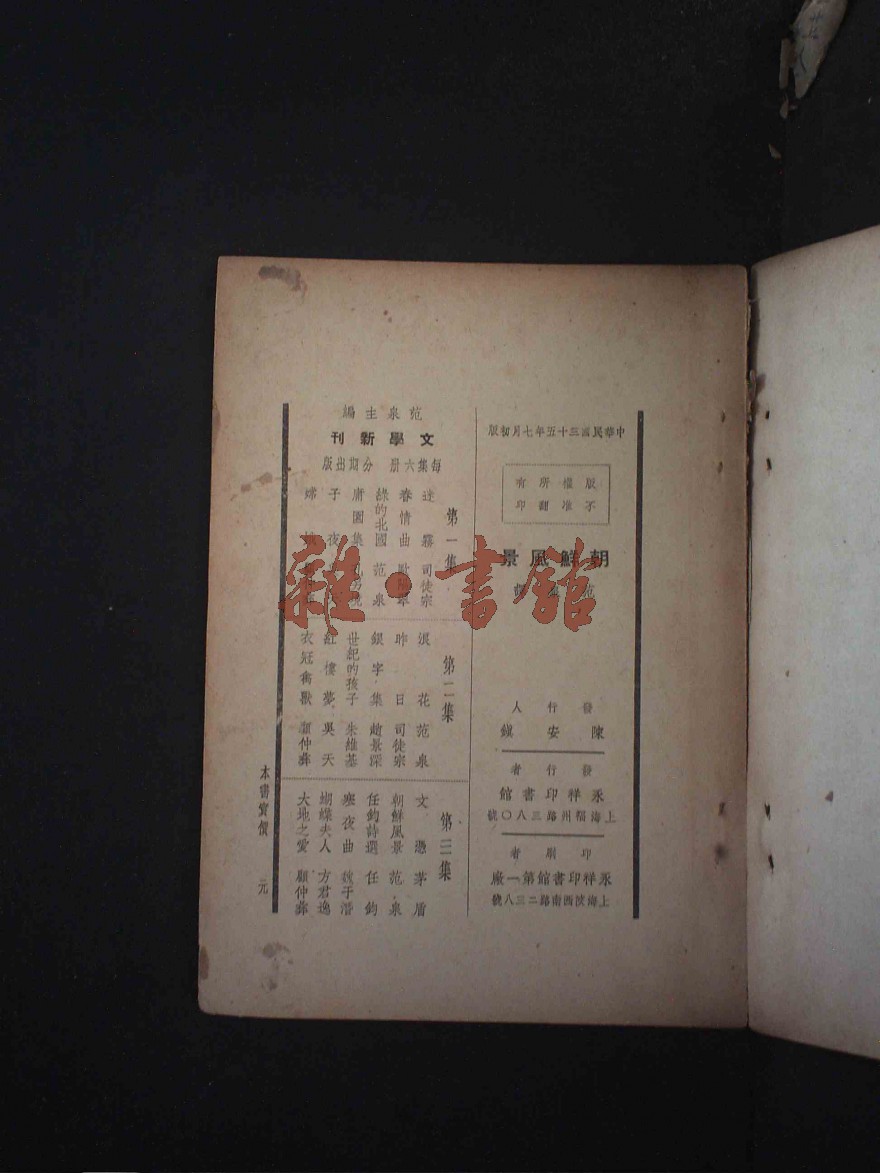 中華民國三十五年七月初版
版權所有
不准翻印
朝鮮風景
范
發行人
陳安鎭
發行者
永祥印書館
上海福州路三八〇號
印刷者
永祥印書館第一廠
上海陝西南路二三八號
范泉主編
文學新刊
每集六册 分期出版
第一集
迷霧 司徒宗
春情曲
綠的北國 范泉
庸園集
子夜
第二集
浪花 范泉
昨日 司徒宗
銀字集 趙景深
世紀的孩子 朱維基
紅樓夢 吳天
衣冠禽獸 顧仲彝
第三集
文憑 茅盾
朝鮮風景 范泉
任鈞詩選 任鈞
寒夜曲 魏于潛
蝴蝶夫人 方君逸
大地之愛 顧仲彝
本書實價 元
雜·書館